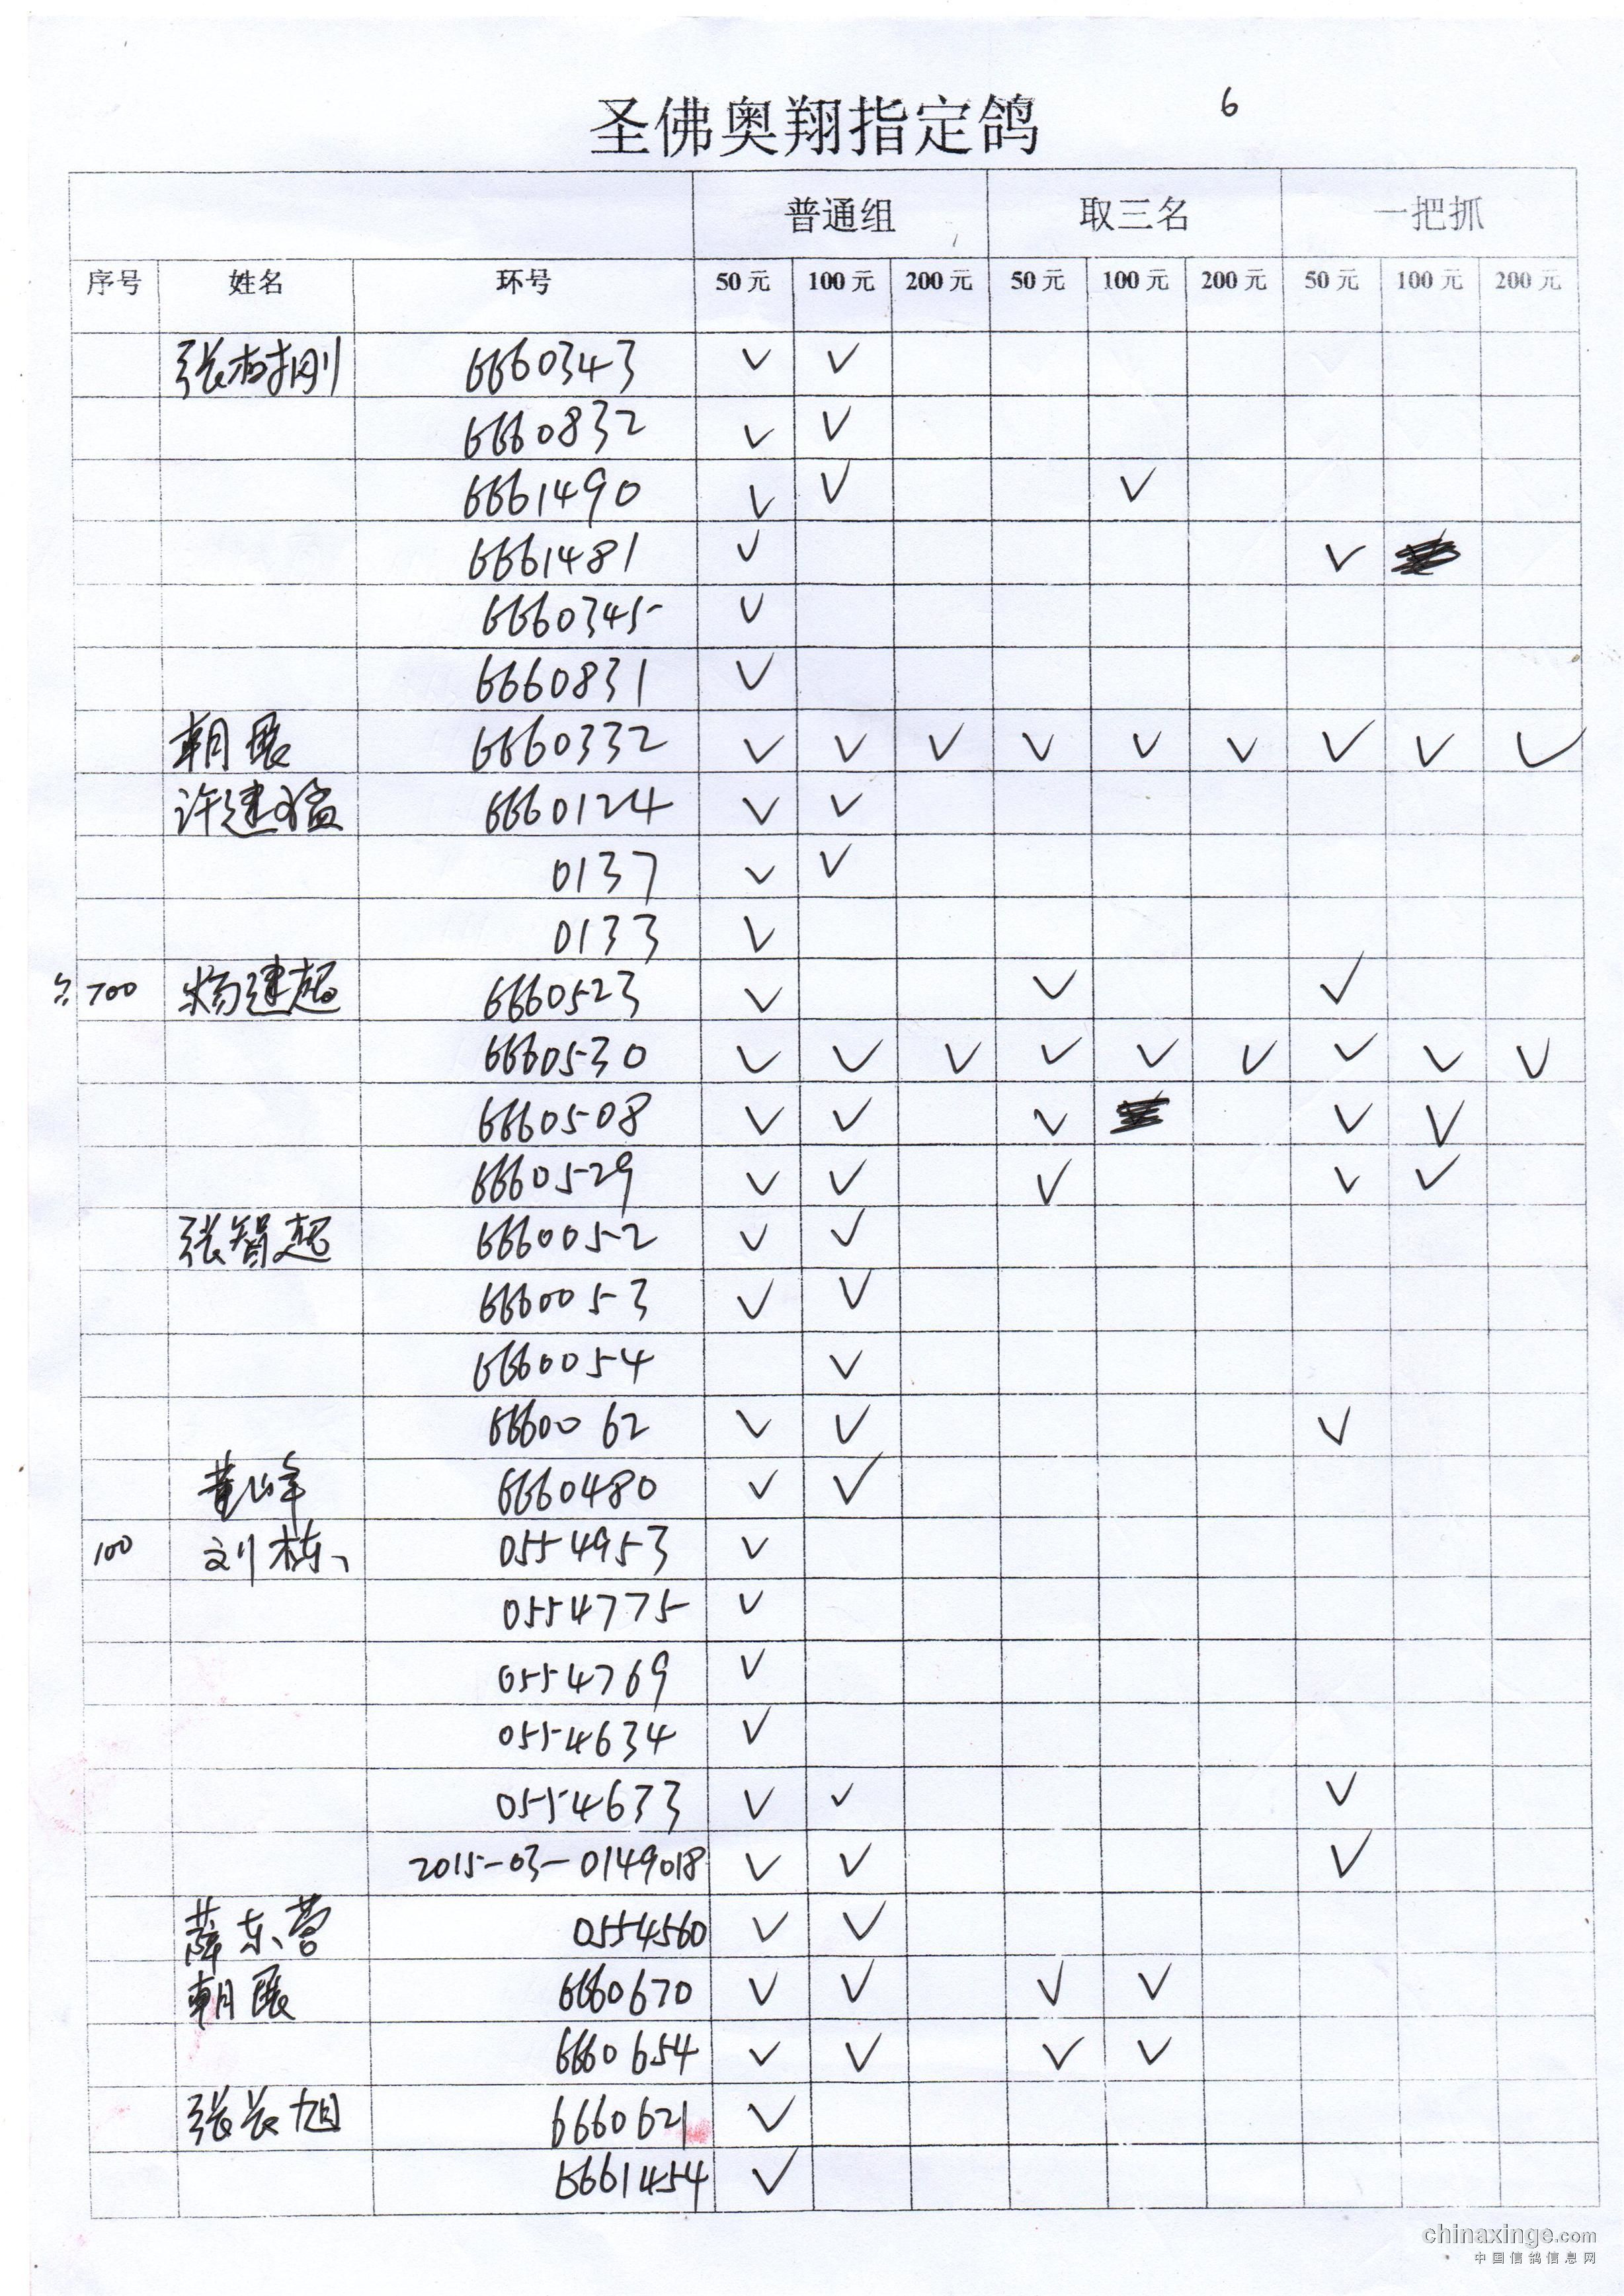 圣佛奥翔指定鸽 6
普通组 取三名 一把抓
序号 姓名 环号 50元 100元 200元 50元 100元 200元 50元 100元 200元
张树刚 6660343 ✓ ✓
6660832 ✓ ✓
6661490 ✓ ✓ ✓
6661481 ✓ ✓
6660345 ✓
6660831 ✓
朝展 6660332 ✓ ✓ ✓ ✓ ✓ ✓ ✓ ✓ ✓
许建猛 6660124 ✓ ✓
0137 ✓ ✓
0133 ✓
700 杨建超 6660523 ✓ ✓ ✓
6660530 ✓ ✓ ✓ ✓ ✓ ✓ ✓ ✓ ✓
6660508 ✓ ✓ ✓ ✓ ✓
6660529 ✓ ✓ ✓ ✓ ✓
张智超 6660052 ✓ ✓
6660053 ✓ ✓
6660054 ✓
6660062 ✓ ✓ ✓
黄山峰 6660480 ✓ ✓
100 刘栋 0554953 ✓
0554775 ✓
0554769 ✓
0554634 ✓
0554633 ✓ ✓ ✓
2015-03-0149018 ✓ ✓ ✓
薛东营 0554560 ✓ ✓
朝展 6660670 ✓ ✓ ✓ ✓
6660654 ✓ ✓ ✓ ✓
张长旭 6660621 ✓
6661454 ✓
chinaxinge.com
中国信鸽信息网